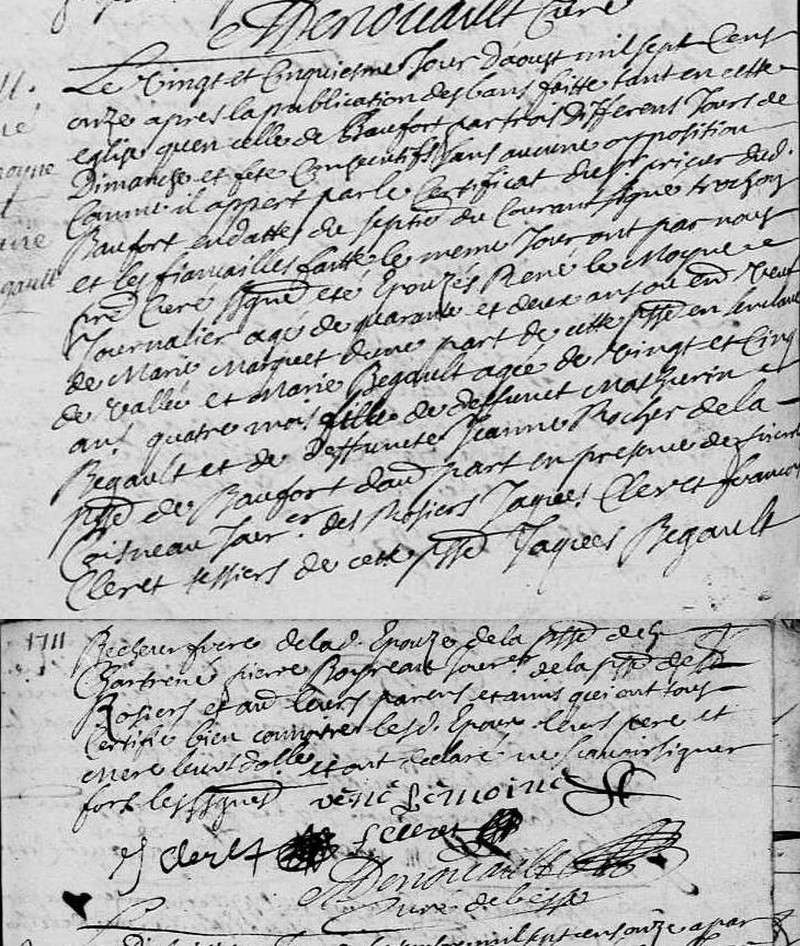 Denouault Curé
Le Vingt et Cinquiesme Jour d'aoust mil sept Cens
onze apres la publication des bans faitte tant en cette
eglise qu'en celle de Baufort par trois differens Jours de
Dimanche et fete Consecutifs sans aucune opposition
Comme il appert par le Certificat du sr prieur dud.
Baufort en datte du septie du Courant signe trochon
et les fiancailles faitte le meme Jour ont par nous
pre Curé ssigné été Epouzés René le Moyne
Journalier agé de quarante et deux ans ou en veuf
de Marie Marquet d'une part de cette psse en
de Vallée et Marie Begault agée de Vingt et Cinq
ans quatre mois fille de deffunct Mathurin
Begault et de Deffuncte Jeanne Rocher de la
psse de Baufort d'au part en presence de pierre
Coisneau Jour er des Rosiers Jaques Cleret francois
Cleret tessiers de cette psse Jaques Begault
1711
frere de lad. Epouze de la psse de
Chartrené pierre Jour er de la psse des
Rosiers et au leurs parens et amis qui ont tous
Certifié bien connoitre lesd. Epoux leurs pere et
mere leur et ont declaré ne scavoir signer
fors les ssignes René Lemoine
J cleret f Cleret
Denouault
Curé de besse
mil sept cens onze apar